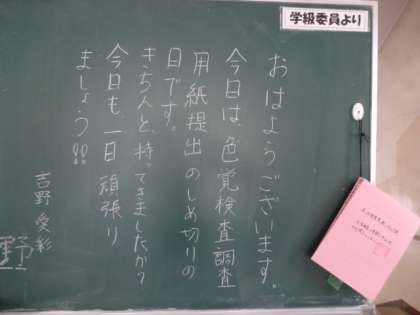 学級委員より
おはようございます。
今日は、色覚検査調査
用紙提出のしめ切りの
日です。
きちんと、持ってきましたか?
今日も、一日頑張り
ましょう!!
吉野 愛彩
野